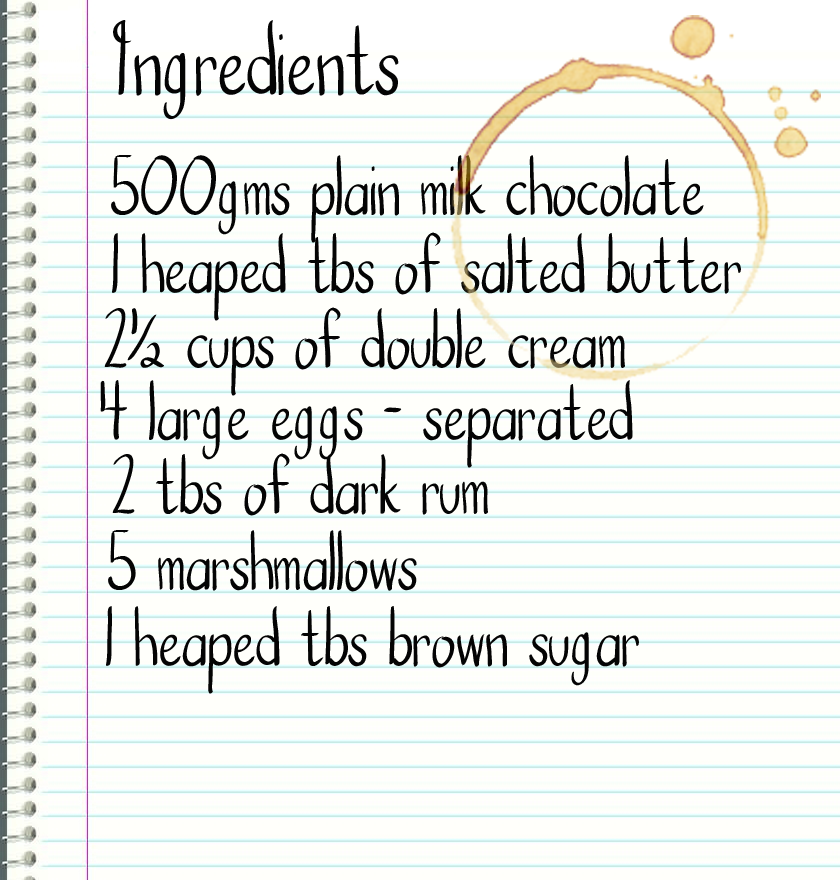 Ingredients
500gms plain milk chocolate
1 heaped tbs of salted butter
2½ cups of double cream
4 large eggs - separated
2 tbs of dark rum
5 marshmallows
1 heaped tbs brown sugar